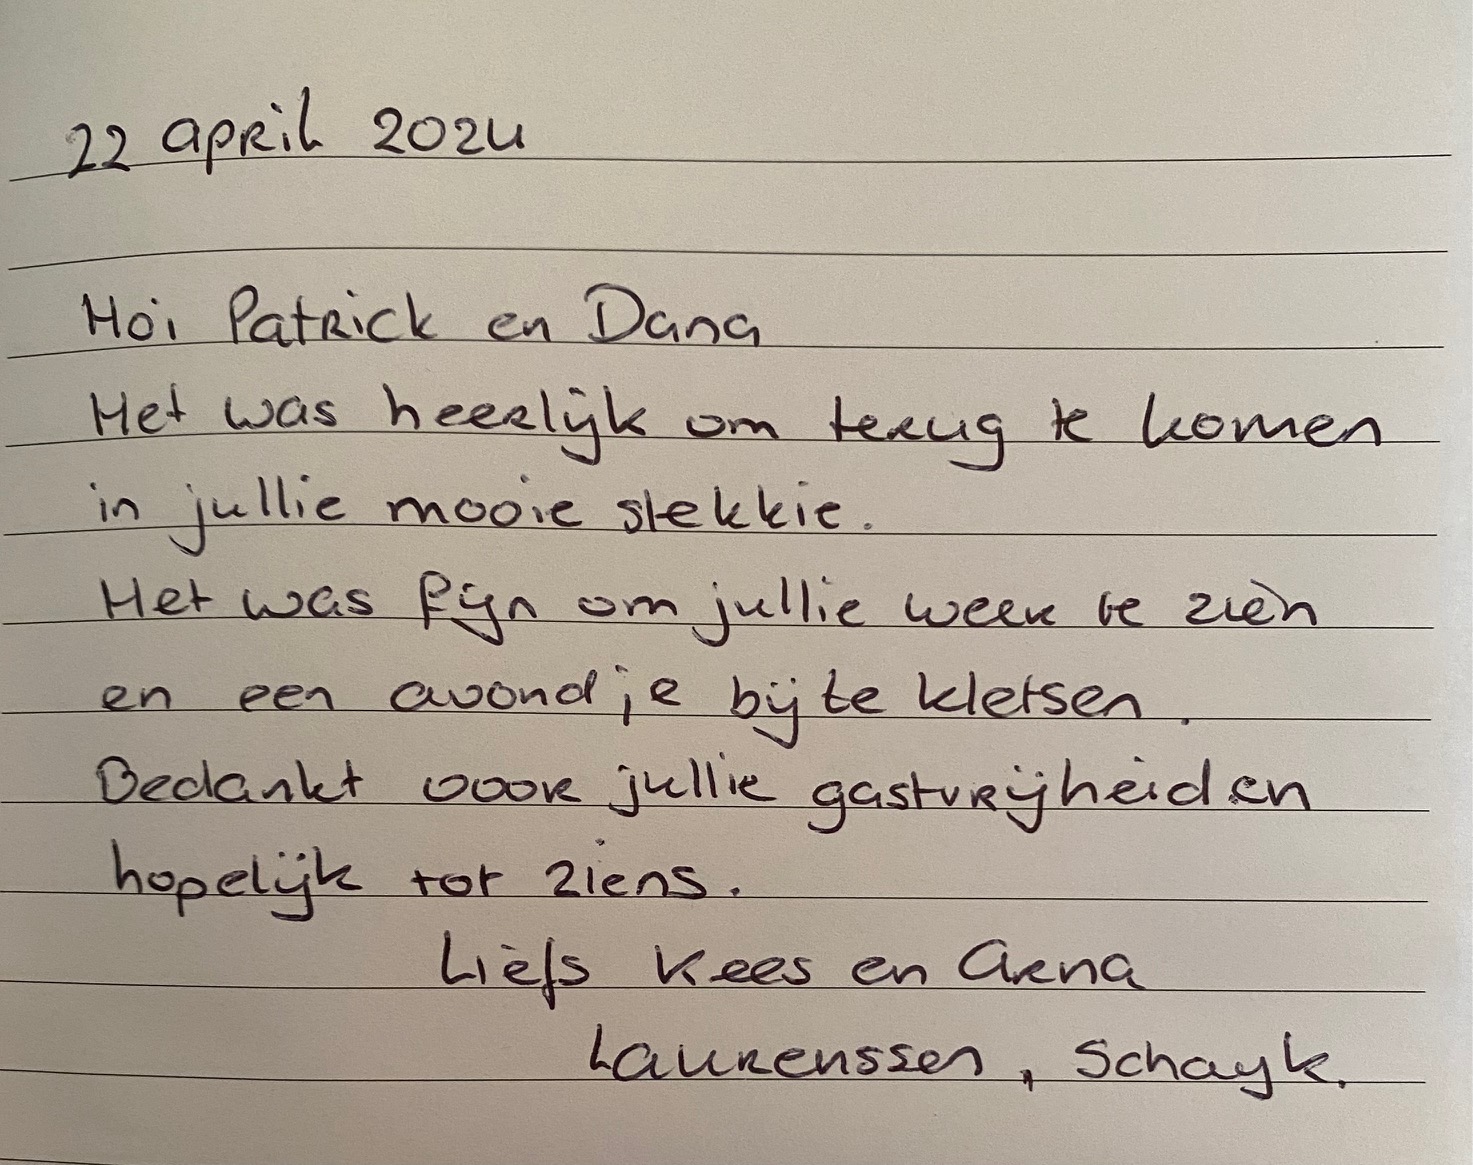 22 april 2024
Hoi Patrick en Dana
Het was heerlijk om terug te komen
in jullie mooie stekkie.
Het was fijn om jullie weer te zien
en een avondje bij te kletsen.
Bedankt voor jullie gastvrijheid en
hopelijk tot ziens.
Liefs Kees en Arna
Laurenssen, Schayk.